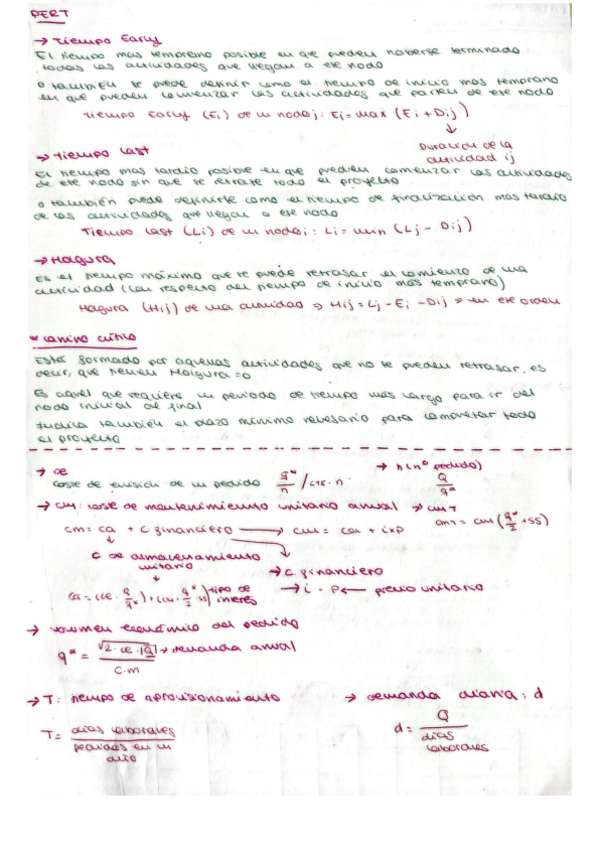 PERT
→ Tiempo Early
El tiempo mas temprano posible en que pueden haberse terminado
todas las actividades que llegan a ese nodo
o también se puede definir como el tiempo de inicio más temprano
en que pueden comenzar las actividades que parten de ese nodo
Tiempo Early (Ei) de un nodo j: Ej = max (Ei + Dij)
↓
Duración de la
actividad ij
→ Tiempo Last
El tiempo mas tardío posible en que pueden comenzar las actividades
de ese nodo sin que se retrase todo el proyecto
o también puede definirse como el tiempo de finalización mas tardío
de las actividades que llegan a ese nodo
Tiempo Last (Li) de un nodo i: Li = min (Lj - Dij)
→ Holgura
Es el tiempo máximo que se puede retrasar el comienzo de una
actividad (con respecto del tiempo de inicio más temprano)
Holgura (Hij) de una actividad ⇒ Hij = Lj - Ei - Dij ⇒ en ese orden
* Camino crítico
Está formado por aquellas actividades que no se pueden retrasar, es
decir, que tienen Holgura = 0
Es aquel que requiere un periodo de tiempo más largo para ir del
nodo inicial al final
Indica también el plazo mínimo necesario para completar todo
el proyecto
→ ce
coste de emisión de un pedido q*/n / cte · n
→ n (nº pedido)
Q/q*
→ cm: coste de mantenimiento unitario anual
→ cm T
cmT = cm (q*/2 + SS)
cm = ca + c financiero → cm = ca + i×P
↓
c de almacenamiento
unitario
↓
→ c. financiero
→ i · P ← precio unitario
tipo de
interés
→ volumen económico del pedido
q* = √2·ce·Q → demanda anual
c.m
→ T: tiempo de aprovisionamiento
→ demanda diaria: d
T = días laborales
pedidos en un
año
d = Q
días
laborales